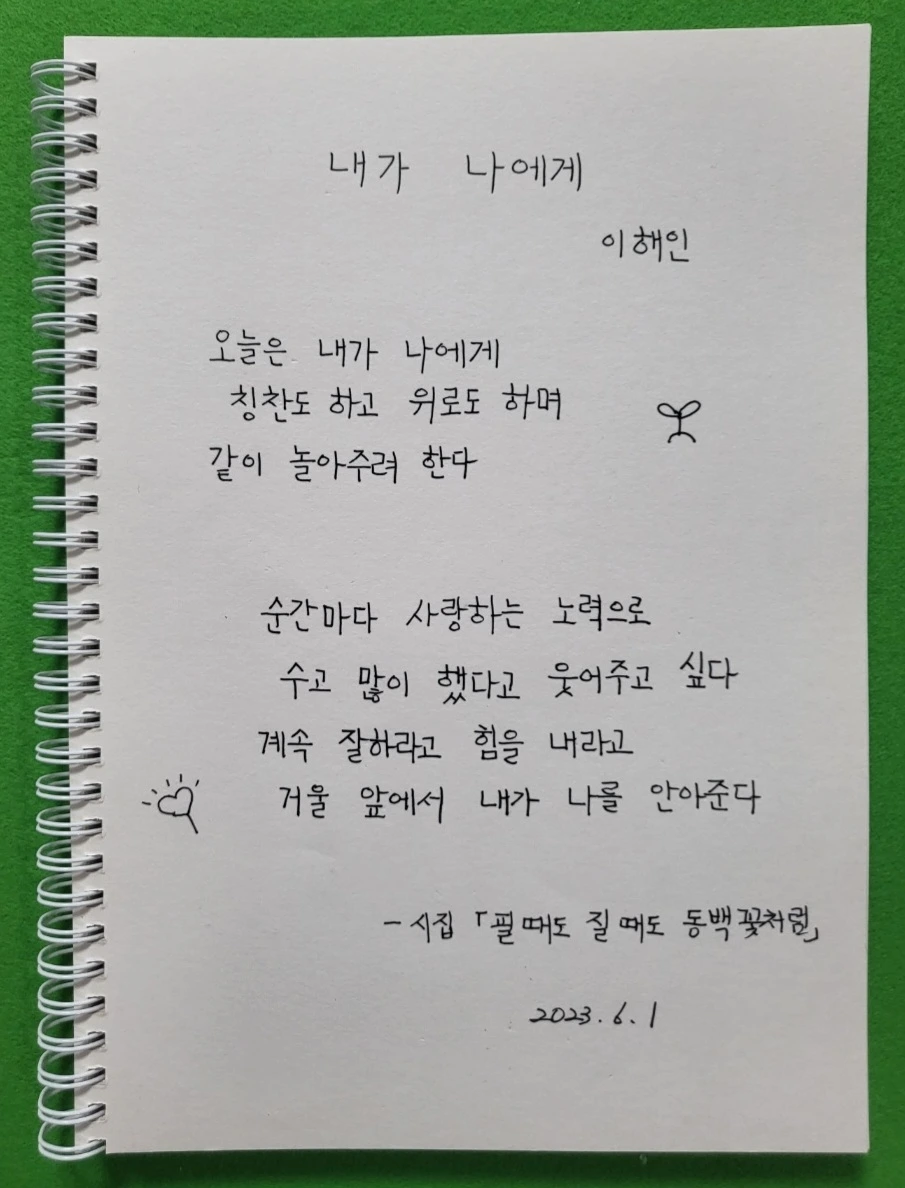 내가 나에게
이해인
오늘은 내가 나에게
칭찬도 하고 위로도 하며
같이 놀아주려 한다
순간마다 사랑하는 노력으로
수고 많이 했다고 웃어주고 싶다
계속 잘하라고 힘을 내라고
거울 앞에서 내가 나를 안아준다
- 시집 「필 때도 질 때도 동백꽃처럼」
2023. 6. 1